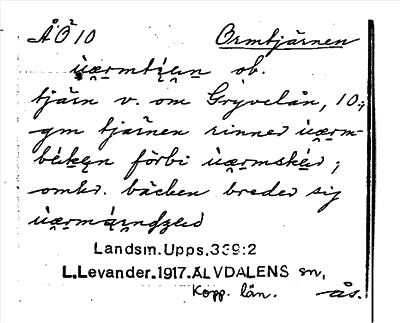 ÅÖ 10 Ormtjärnen
ob.
tjärn v. om Gryvelån, 10;
gm tjärnen rinner
förbi ;
omkr. bäcken breder sig
Landsm.Upps.339:2
L.Levander.1917.ÄLVDALENS sn,
Kopp. län. ås.